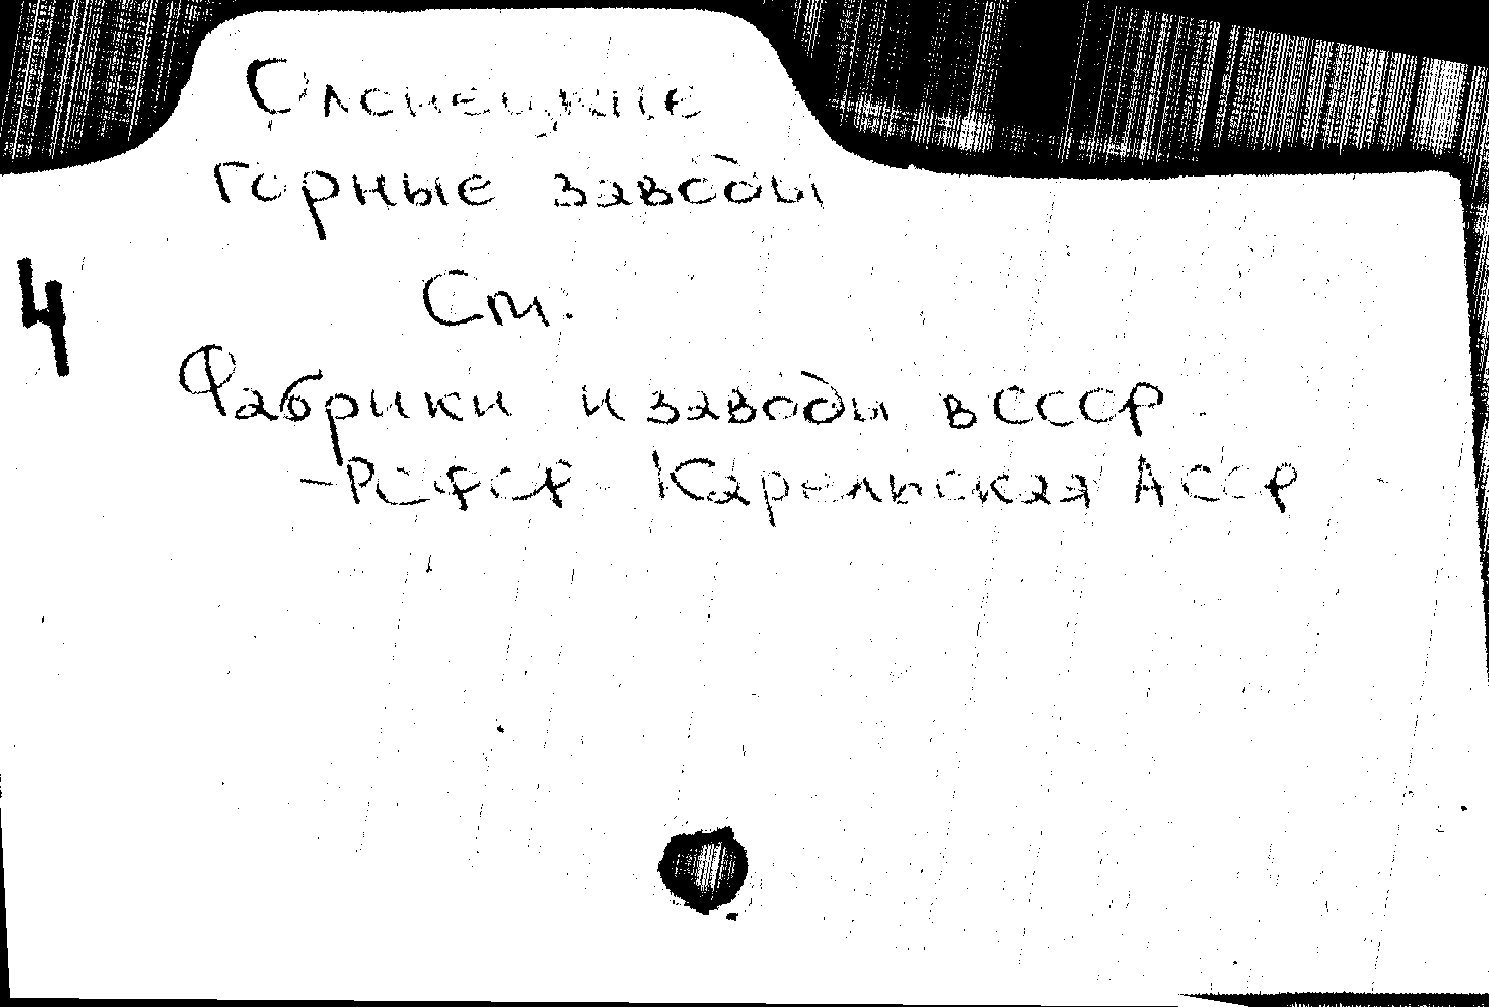 Олонецкие
горные заводы
4
См.
Фабрики и заводы в СССР
- РСФСР - Карельская АССР